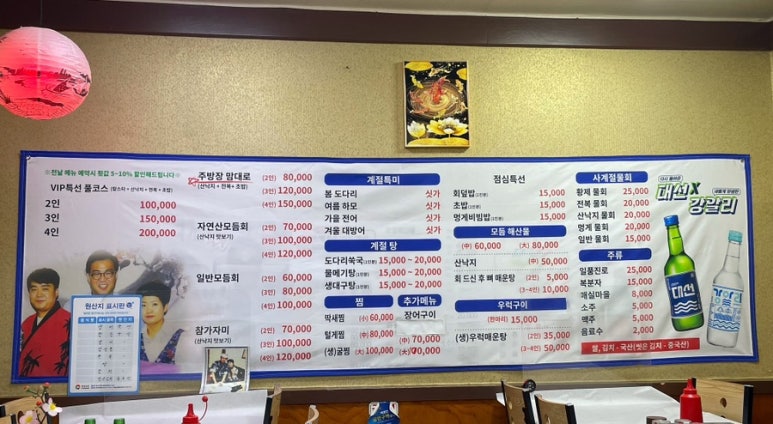 ※전날 메뉴 예약시 횟값 5~10% 할인해드립니다※
VIP특선 풀코스 (랍스타 + 산낙지 + 전복 + 초밥)
2인 100,000
3인 150,000
4인 200,000
주방장 맘대로 (2인) 80,000
(산낙지 + 전복 + 초밥) (3인) 120,000
(4인) 150,000
자연산모듬회 (2인) 70,000
(산낙지 맛보기) (3인) 100,000
(4인) 120,000
일반모듬회 (2인) 60,000
(3인) 80,000
(4인) 100,000
참가자미 (2인) 70,000
(산낙지 맛보기) (3인) 100,000
(4인) 120,000
원산지 표시판
계절특미
봄 도다리 싯가
여름 하모 싯가
가을 전어 싯가
겨울 대방어 싯가
계절 탕
도다리쑥국(1인분) 15,000 ~ 20,000
물메기탕(1인분) 15,000 ~ 20,000
생대구탕(1인분) 15,000 ~ 20,000
찜
딱새찜 (小) 60,000
털게찜 (中) 80,000
(생)굴찜 (大) 100,000
추가메뉴
장어구이
(中) 70,000
(大) 70,000
점심특선
회덮밥(1인분) 15,000
초밥(1인분) 15,000
멍게비빔밥(1인분) 15,000
모듬 해산물
(中) 60,000 (大) 80,000
산낙지 (中) 50,000
회 드신 후 뼈 매운탕 (2인) 5,000
(3~4인) 10,000
우럭구이
(한마리) 15,000
(생)우럭매운탕 (2인) 35,000
(3~4인) 50,000
사계절물회
황제 물회 25,000
전복 물회 20,000
산낙지 물회 20,000
멍게 물회 20,000
일반 물회 15,000
주류
일품진로 25,000
복분자 15,000
매실마을 8,000
소주 5,000
맥주 5,000
음료수 2,000
쌀, 김치 - 국산(씻은 김치 - 중국산)
대선 X
강갈리
대선